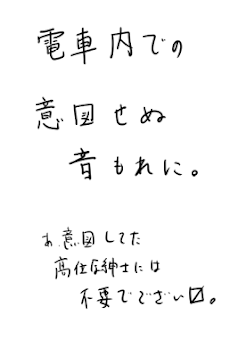 電車内での
意図せぬ
音もれに。
あ、意図してた
高仕な紳士には
不要でござい〼。